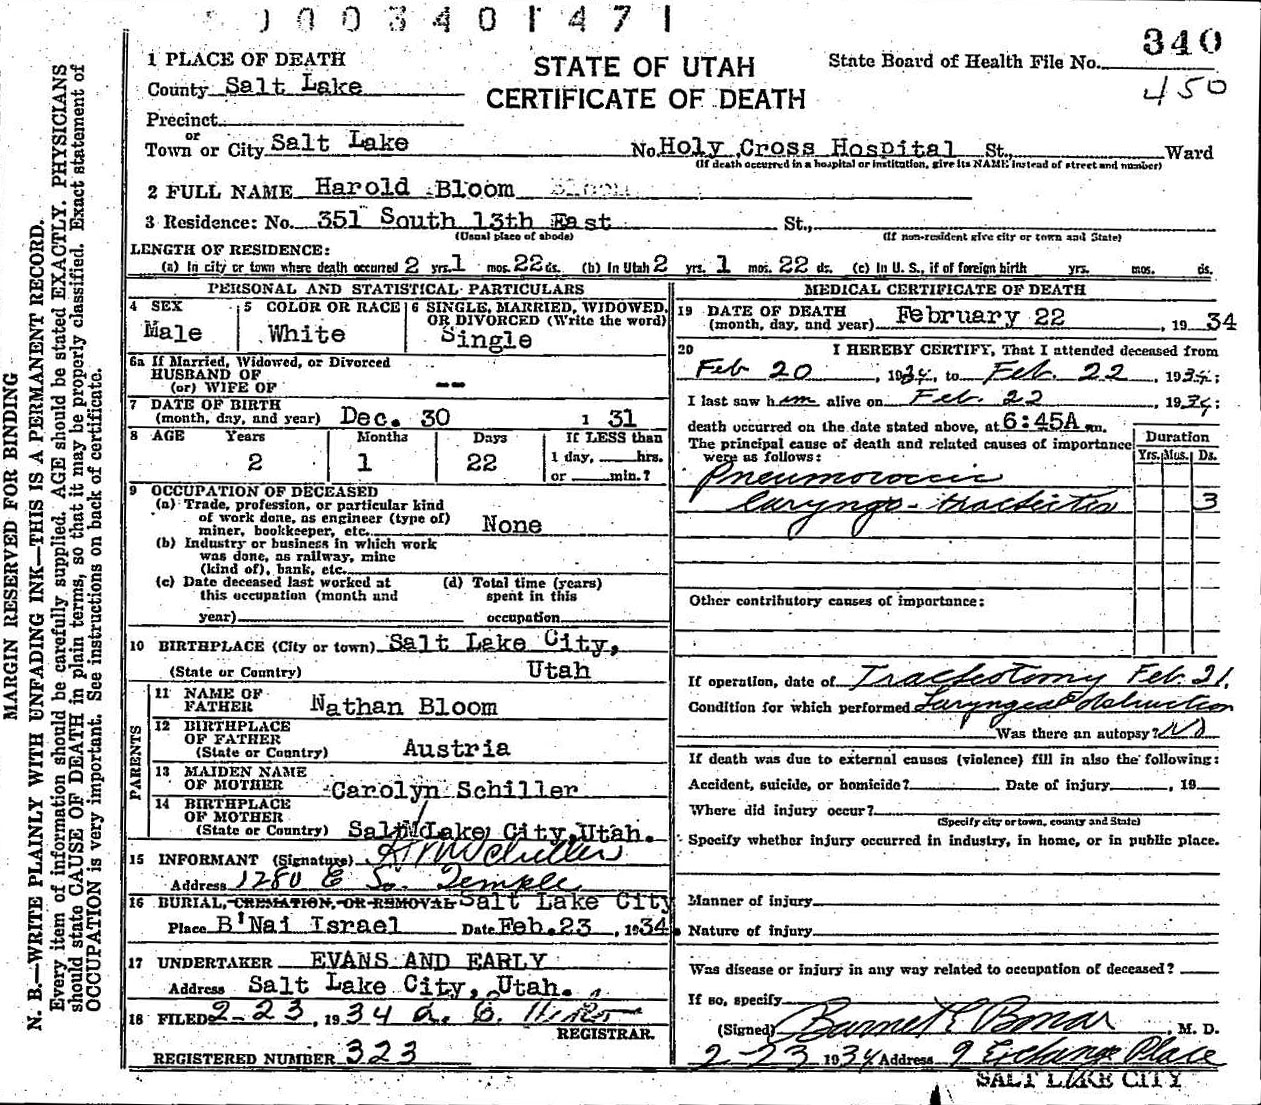 0003401471
340
State Board of Health File No.
450
STATE OF UTAH
CERTIFICATE OF DEATH
1 PLACE OF DEATH
County Salt Lake
Precinct
or
Town or City Salt Lake No. Holy Cross Hospital St., Ward
(If death occurred in a hospital or institution, give its NAME instead of street and number)
2 FULL NAME Harold Bloom
3 Residence: No. 351 South 13th East St.,
(Usual place of abode) (If non-resident give city or town and State)
LENGTH OF RESIDENCE:
(a) In city or town where death occurred 2 yrs. 1 mos. 22 ds. (b) In Utah 2 yrs. 1 mos. 22 ds. (c) In U. S., if of foreign birth yrs. mos. ds.
PERSONAL AND STATISTICAL PARTICULARS
4 SEX
Male
5 COLOR OR RACE
White
6 SINGLE, MARRIED, WIDOWED, OR DIVORCED (Write the word)
Single
6a If Married, Widowed, or Divorced
HUSBAND OF
(or) WIFE OF --
7 DATE OF BIRTH
(month, day, and year) Dec. 30 1 31
8 AGE Years Months Days If LESS than
2 1 22 1 day, hrs.
or min.?
9 OCCUPATION OF DECEASED
(a) Trade, profession, or particular kind
of work done, as engineer (type of)
miner, bookkeeper, etc. None
(b) Industry or business in which work
was done, as railway, mine
(kind of), bank, etc.
(c) Date deceased last worked at
this occupation (month and
year)
(d) Total time (years)
spent in this
occupation
10 BIRTHPLACE (City or town) Salt Lake City,
(State or Country) Utah
PARENTS
11 NAME OF
FATHER Nathan Bloom
12 BIRTHPLACE
OF FATHER
(State or Country) Austria
13 MAIDEN NAME
OF MOTHER Carolyn Schiller
14 BIRTHPLACE
OF MOTHER
(State or Country) Salt Lake City, Utah.
15 INFORMANT (Signature) Schiller
Address 1280 E So. Temple
16 BURIAL, CREMATION, OR REMOVAL Salt Lake City
Place B'Nai Israel Date Feb. 23, 1934.
17 UNDERTAKER EVANS AND EARLY
Address Salt Lake City, Utah.
18 FILED 2-23, 1934
REGISTRAR.
REGISTERED NUMBER 323
MEDICAL CERTIFICATE OF DEATH
19 DATE OF DEATH
(month, day, and year) February 22, 1934
20 I HEREBY CERTIFY, That I attended deceased from
Feb 20, 1934, to Feb. 22, 1934;
I last saw him alive on Feb. 22, 1934;
death occurred on the date stated above, at 6:45A m.
The principal cause of death and related causes of importance
were as follows:
Duration
Yrs. Mos. Ds.
Pneumococcic
Laryngo- 3
Other contributory causes of importance:
If operation, date of Tracheotomy Feb. 21.
Condition for which performed Laryngeal Obstruction
Was there an autopsy? No
If death was due to external causes (violence) fill in also the following:
Accident, suicide, or homicide? Date of injury, 19
Where did injury occur?
(Specify city or town, county and State)
Specify whether injury occurred in industry, in home, or in public place.
Manner of injury
Nature of injury
Was disease or injury in any way related to occupation of deceased?
If so, specify
(Signed) Barnet E Bonar, M. D.
2-23 1934 Address 9 Exchange Place
SALT LAKE CITY
MARGIN RESERVED FOR BINDING
N. B.—WRITE PLAINLY WITH UNFADING INK—THIS IS A PERMANENT RECORD.
Every item of information should be carefully supplied. AGE should be stated EXACTLY. PHYSICIANS
should state CAUSE OF DEATH in plain terms, so that it may be properly classified. Exact statement of
OCCUPATION is very important. See instructions on back of certificate.